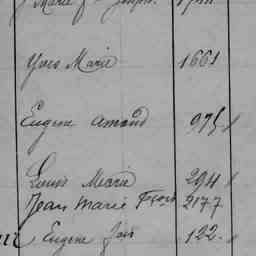 Yves Marie 1661
Eugene Amand 975
Louis Marie 2911
Jean Marie Fçois 2177
Eugene Jos 122